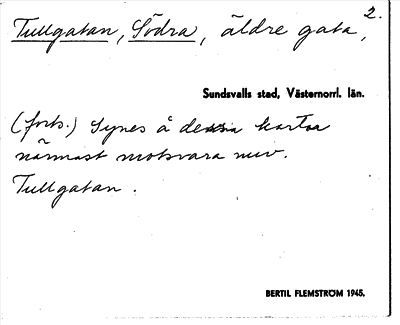 2.
Tullgatan, Södra, äldre gata,
Sundsvalls stad, Västernorrl. län.
(forts.) Synes å dessa kartor
närmast motsvara nuv.
Tullgatan.
BERTIL FLEMSTRÖM 1945.